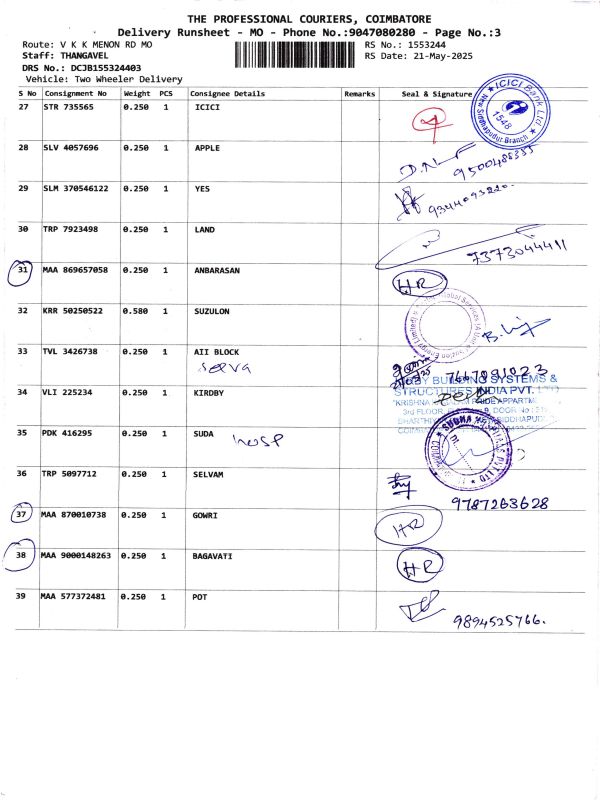 THE PROFESSIONAL COURIERS, COIMBATORE
Delivery Runsheet - MO - Phone No.:9047080280 - Page No.:3
Route: V K K MENON RD MO RS No.: 1553244
Staff: THANGAVEL RS Date: 21-May-2025
DRS No.: DCJB155324403
Vehicle: Two Wheeler Delivery
S No Consignment No Weight PCS Consignee Details Remarks Seal & Signature
27 STR 735565 0.250 1 ICICI
ICICI Bank Ltd
1548
New Siddhapudur Branch
28 SLV 4057696 0.250 1 APPLE
29 SLM 370546122 0.250 1 YES
30 TRP 7923498 0.250 1 LAND
7373044411
31 MAA 869657058 0.250 1 ANBARASAN HR
32 KRR 50250522 0.580 1 SUZULON
33 TVL 3426738 0.250 1 AII BLOCK
seeva
34 VLI 225234 0.250 1 KIRDBY
BUILDING SYSTEMS &
STRUCTURES INDIA PVT. LTD
35 PDK 416295 0.250 1 SUDA
hosp
36 TRP 5097712 0.250 1 SELVAM
9787263628
37 MAA 870010738 0.250 1 GOWRI HR
38 MAA 9000148263 0.250 1 BAGAVATI HR
39 MAA 577372481 0.250 1 POT
9894525766.